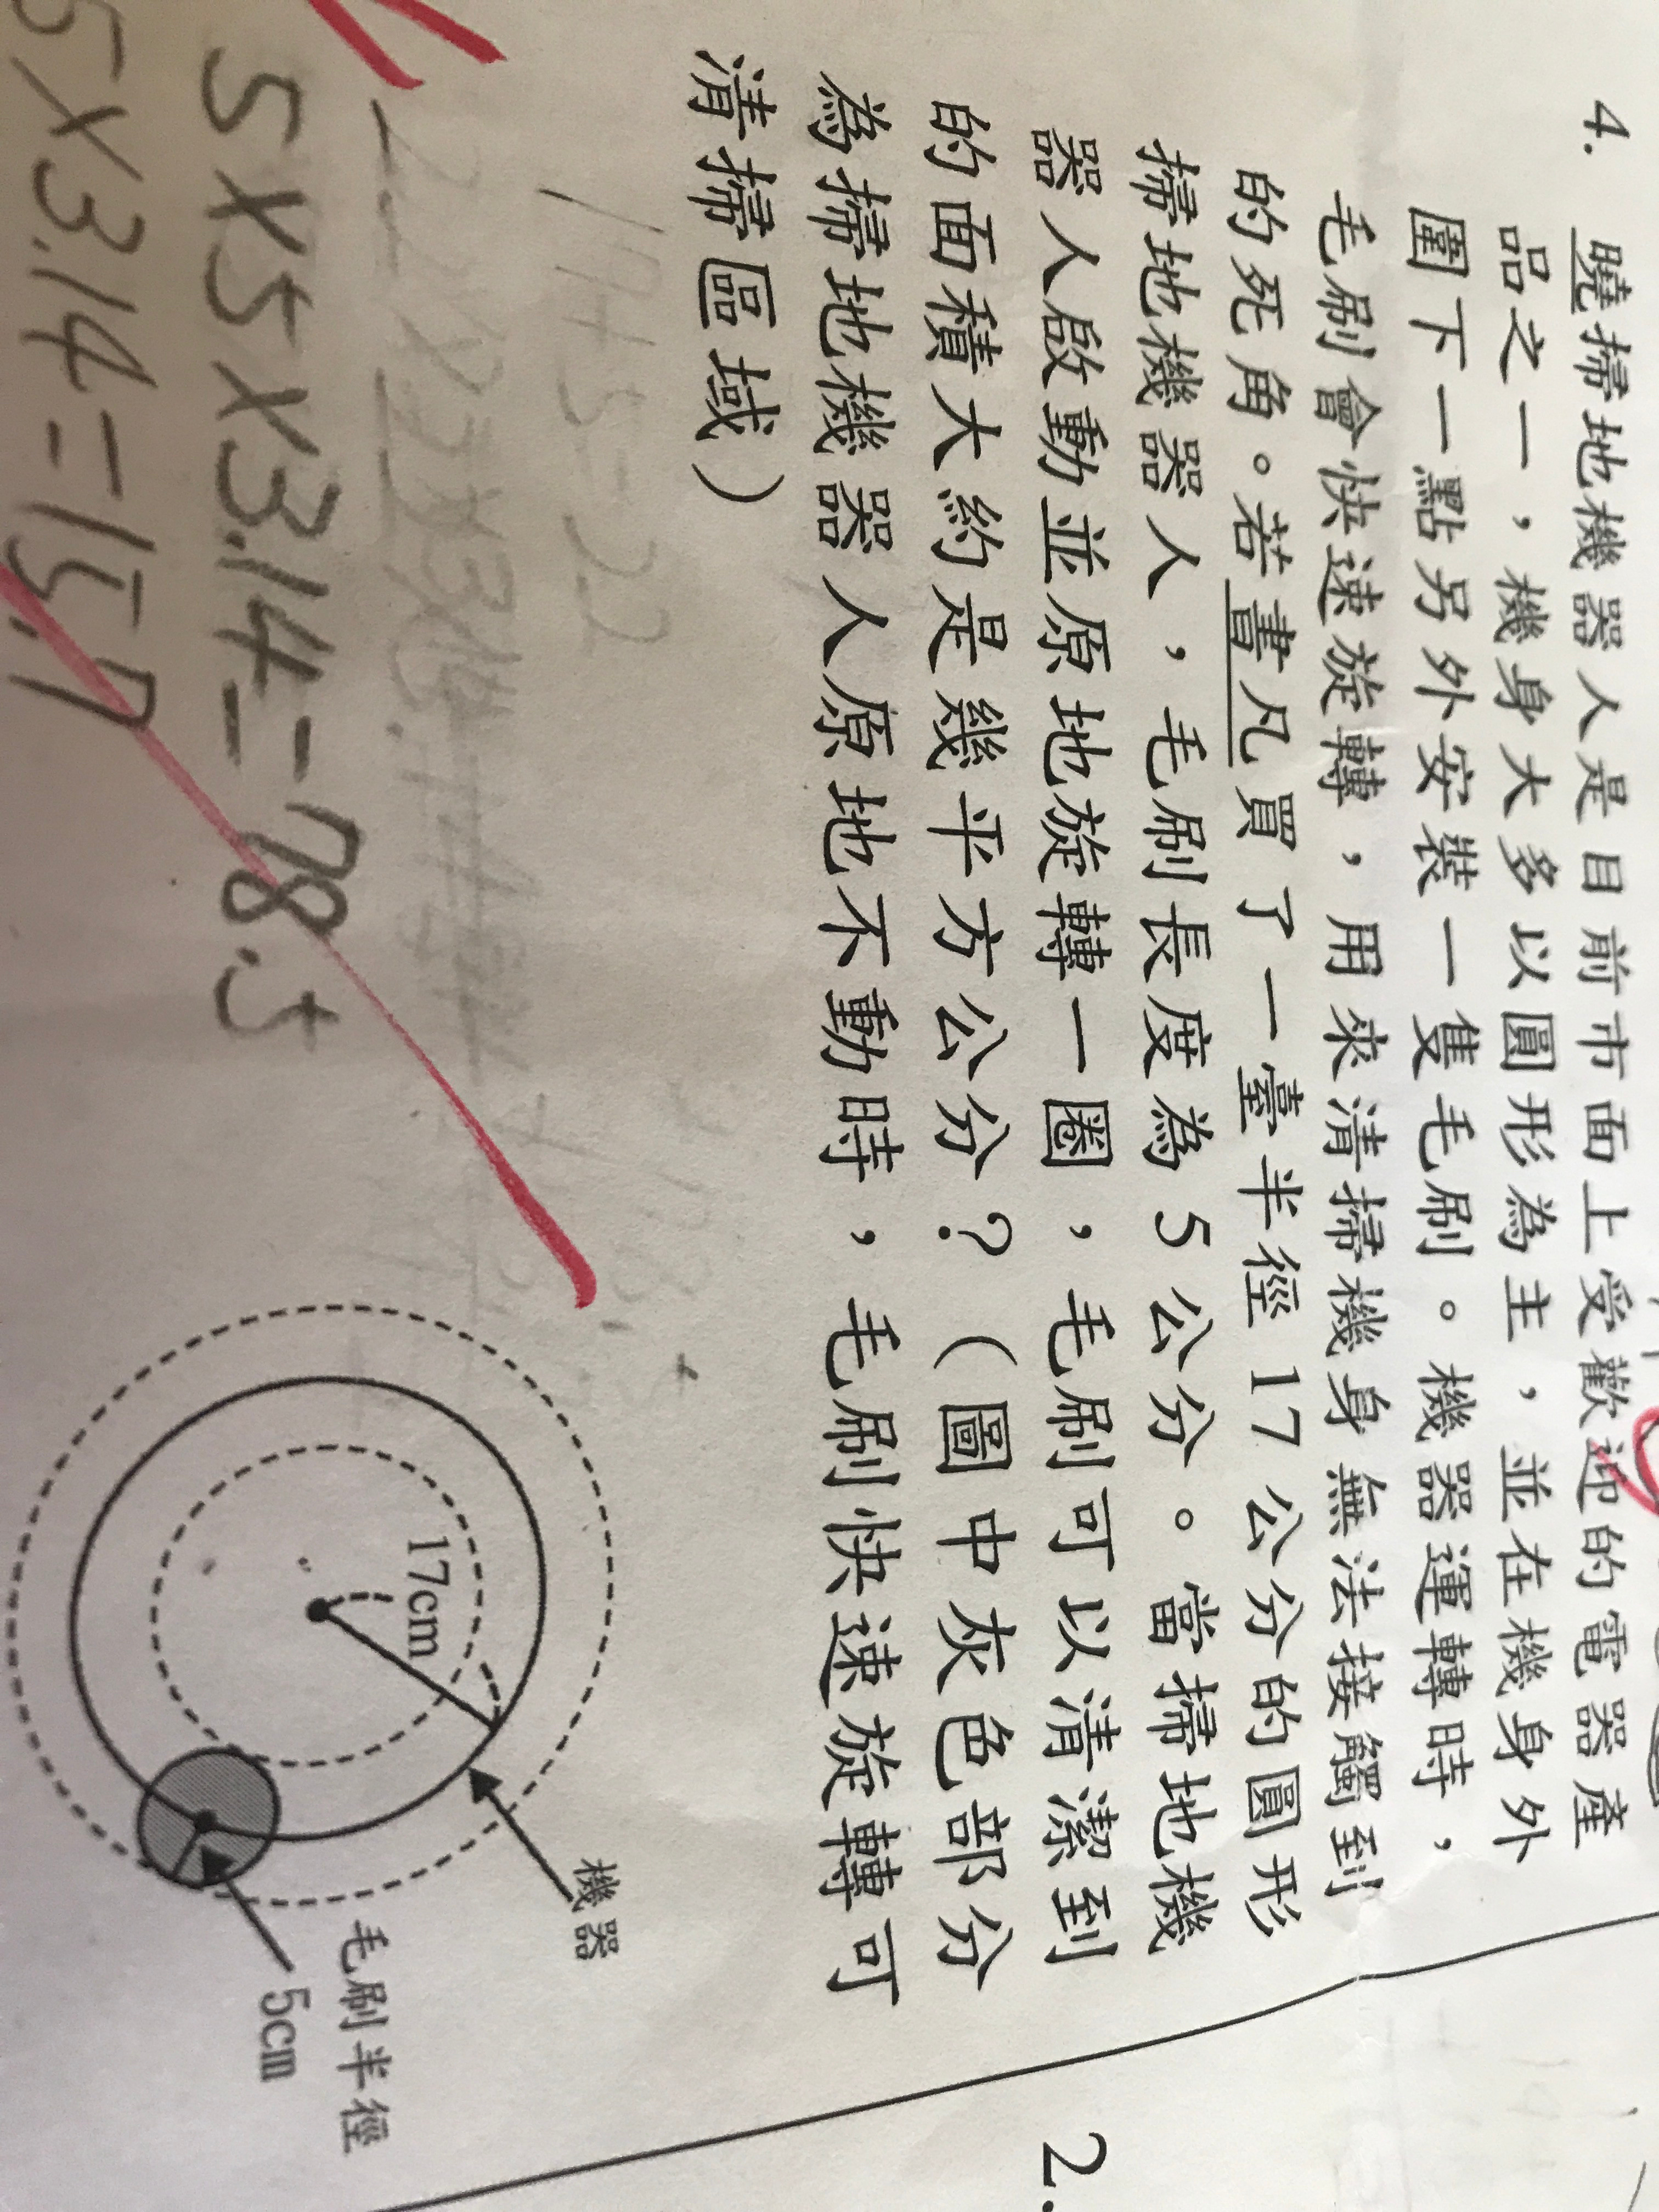 4. 曉掃地機器人是目前市面上受歡迎的電器產
品之一，機身大多以圓形為主，並在機身外
圍下一點另外安裝一隻毛刷。機器運轉時，
毛刷會快速旋轉，用來清掃機身無法接觸到
的死角。若畫凡買了一臺半徑 17 公分的圓形
掃地機器人，毛刷長度為 5 公分。當掃地機
器人啟動並原地旋轉一圈，毛刷可以清潔到
的面積大約是幾平方公分？（圖中灰色部分
為掃地機器人原地不動時，毛刷快速旋轉可
清掃區域）
17+5=22
5×5×3.14=78.5
5×3.14=15.7
17cm
機器
毛刷半徑
5cm
2.